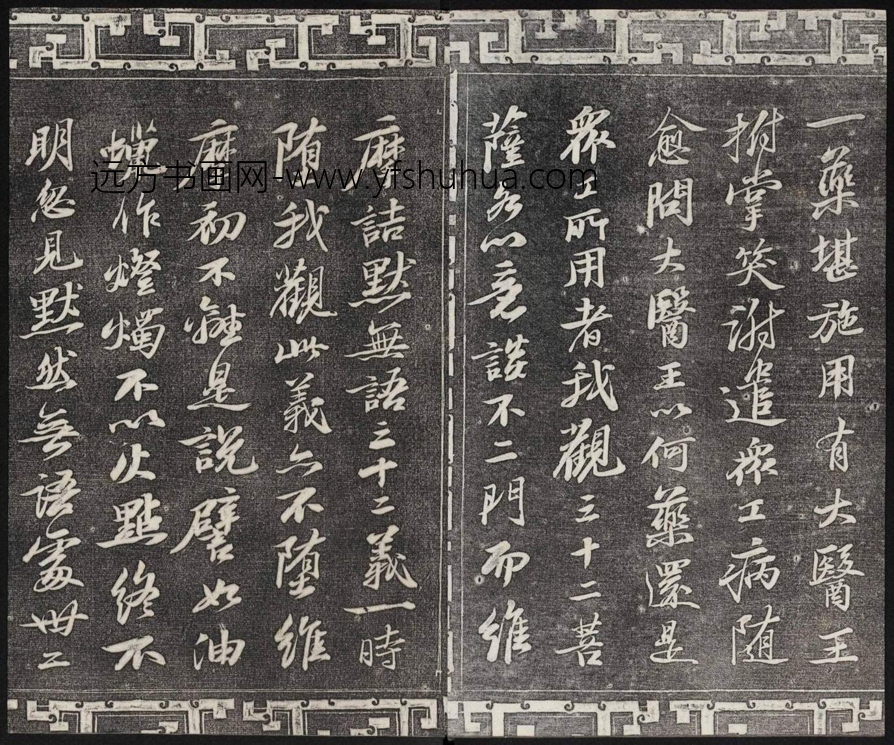 一藥堪施用有大醫王
拊掌笑謝遣眾工病随
愈問大醫王以何藥還是
眾工所用者我觀三十二菩
薩各以意談不二門而維
摩詰默無語三十二義一時
墮我觀此義亦不墮維
摩初不離是說譬如油
蠟作燈燭不以火點終不
明忽見默然無語處卅二
远方书画网-www.yfshuhua.com